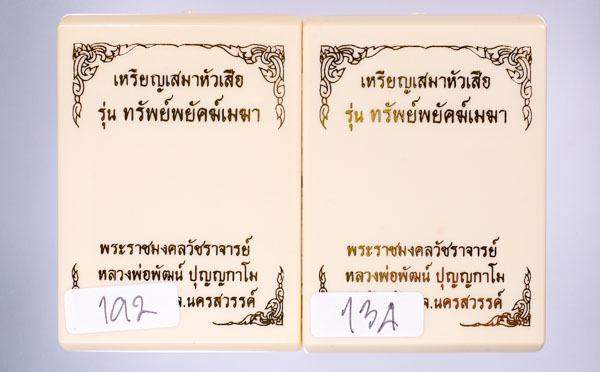 เหรียญเสมาหัวเสือ
รุ่น ทรัพย์พยัคฆ์เมฆา
พระราชมงคลวัชราจารย์
หลวงพ่อพัฒน์ ปุญญกาโม
จ.นครสวรรค์
192
เหรียญเสมาหัวเสือ
รุ่น ทรัพย์พยัคฆ์เมฆา
พระราชมงคลวัชราจารย์
หลวงพ่อพัฒน์ ปุญญกาโม
จ.นครสวรรค์